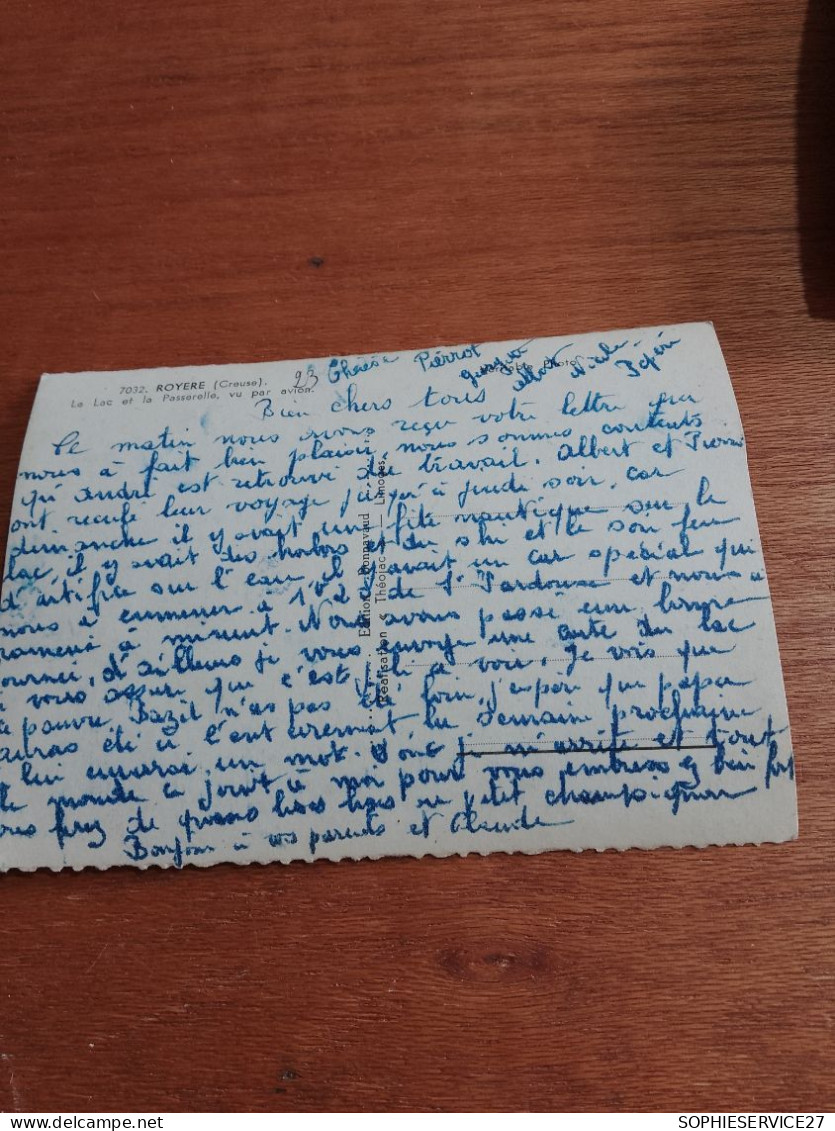 7032. ROYERE (Creuse).
Le Lac et la Passerelle, vu par avion.
23
Thérèse Pierrot
Albert
Pépère
Photo
Bien chers tous
Ce matin nous avons reçu votre lettre qui
nous à fait bien plaisir, nous sommes contents
qu'andré est retrouvé du travail. Albert et Pierrot
ont reculé leur voyage jusqu'à jeudi soir, car
demanche il y avait une fête nautique sur le
lac, il y avait des hors bors et du ski et le soir feu
d'artifice sur l'eau, il y avait un car spécial qui
nous à emmener à 1 de St Pardoux et nous a
ramené à minuit. Nous avons passé une bonne
journée, d'ailleurs je vous envoye une carte du lac
vous assure que c'est joli à voir. Je vois que
pauvre Bazil n'as pas été loin, j'espère que papa
auras été à l'enterrement la semaine prochaine
lui enverrai un mot. Donc je m'arrête et tout
le monde ce joint à moi pour vous embrassez bien fort
vous ferez de grosses bises au petit champignon
Bonjour à vos parents et Claude
Edition Bonnavaud
Réalisation " Théojac " — Limoges
SOPHIESERVICE27